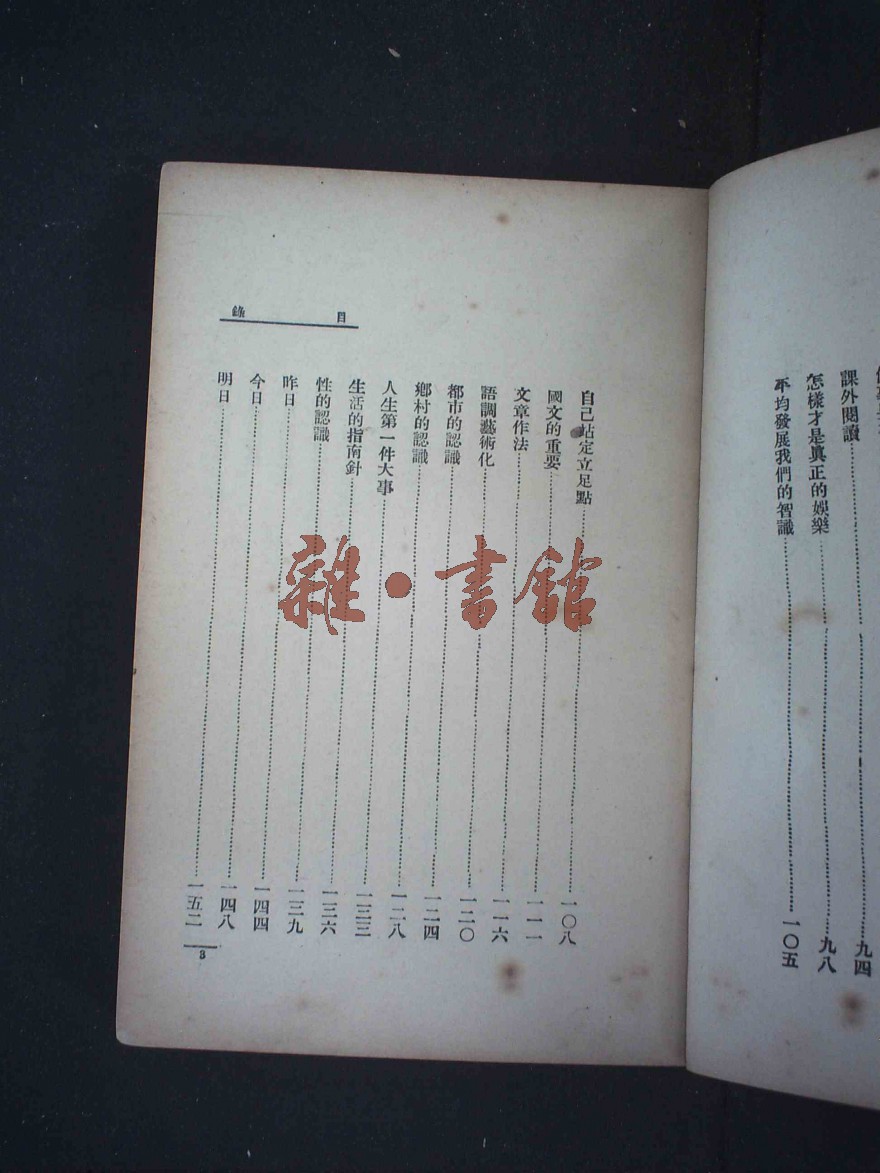 課外閱讀……九四
怎樣才是眞正的娛樂……九八
平均發展我們的智識……一〇五
目錄
自己站定立足點……一〇八
國文的重要……一一一
文章作法……一一六
語調藝術化……一二〇
都市的認識……一二四
鄉村的認識……一二八
人生第一件大事……一三三
生活的指南針……一三六
性的認識……一三九
昨日……一四四
今日……一四八
明日……一五二
3
雜·書館